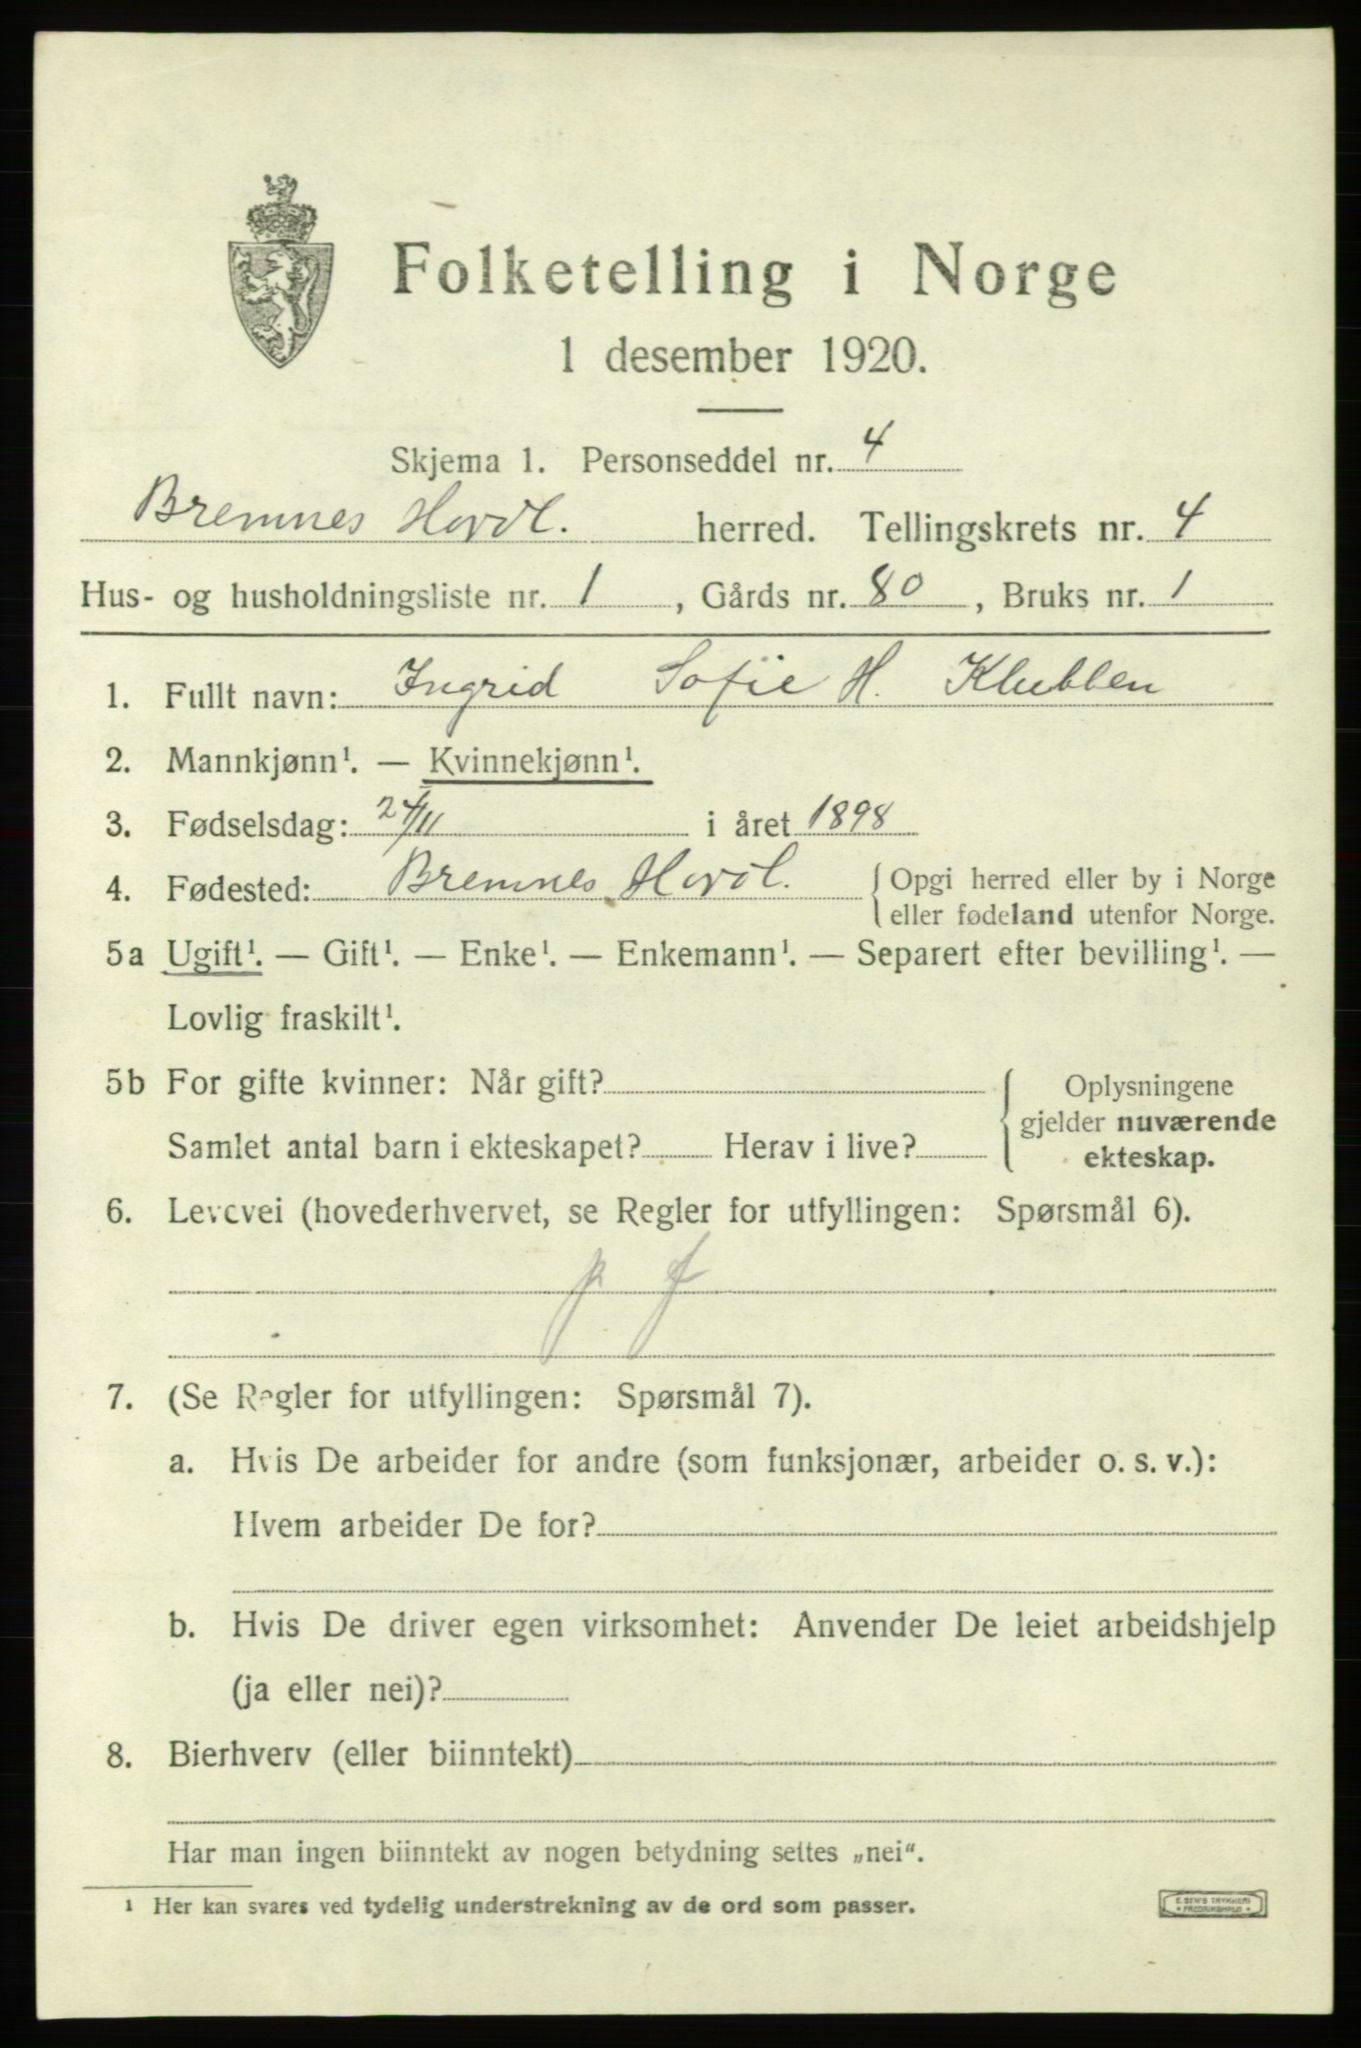 Folketelling i Norge
1 desember 1920.
Skjema 1. Personseddel nr. 4
Bremnes Hordl. herred. Tellingskrets nr. 4
Hus- og husholdningsliste nr. 1, Gårds nr. 80, Bruks nr. 1
1. Fullt navn: Ingrid Sofie H. Klubben
2. Mannkjønn¹. — Kvinnekjønn¹.
3. Fødselsdag: 24/11 i året 1898
4. Fødested: Bremnes Hordl. Opgi herred eller by i Norge
eller fødeland utenfor Norge.
5a Ugift¹. — Gift¹. — Enke¹. — Enkemann¹. — Separert efter bevilling¹. —
Lovlig fraskilt¹.
5b For gifte kvinner: Når gift? Oplysningene
gjelder nuværende
Samlet antal barn i ekteskapet? Herav i live? ekteskap.
6. Levevei (hovederhvervet, se Regler for utfyllingen: Spørsmål 6).
p f
7. (Se Regler for utfyllingen: Spørsmål 7).
a. Hvis De arbeider for andre (som funksjonær, arbeider o. s. v.):
Hvem arbeider De for?
b. Hvis De driver egen virksomhet: Anvender De leiet arbeidshjelp
(ja eller nei)?
8. Bierhverv (eller biinntekt)
Har man ingen biinntekt av nogen betydning settes „nei".
¹ Her kan svares ved tydelig understrekning av de ord som passer.
E. SEM'S TRYKKERI
FREDRIKSHALD